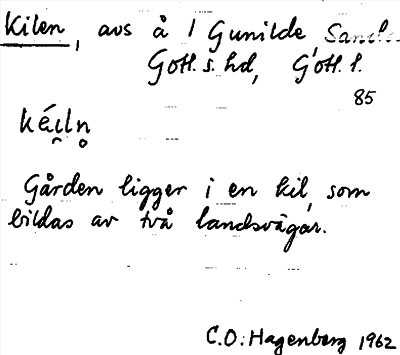 Kilen, avs å 1 Gunilde
Gotl. s. hd, Gotl. l.
85
Gården ligger i en kil, som
bildas av två landsvägar.
C.O. Hagenberg 1962